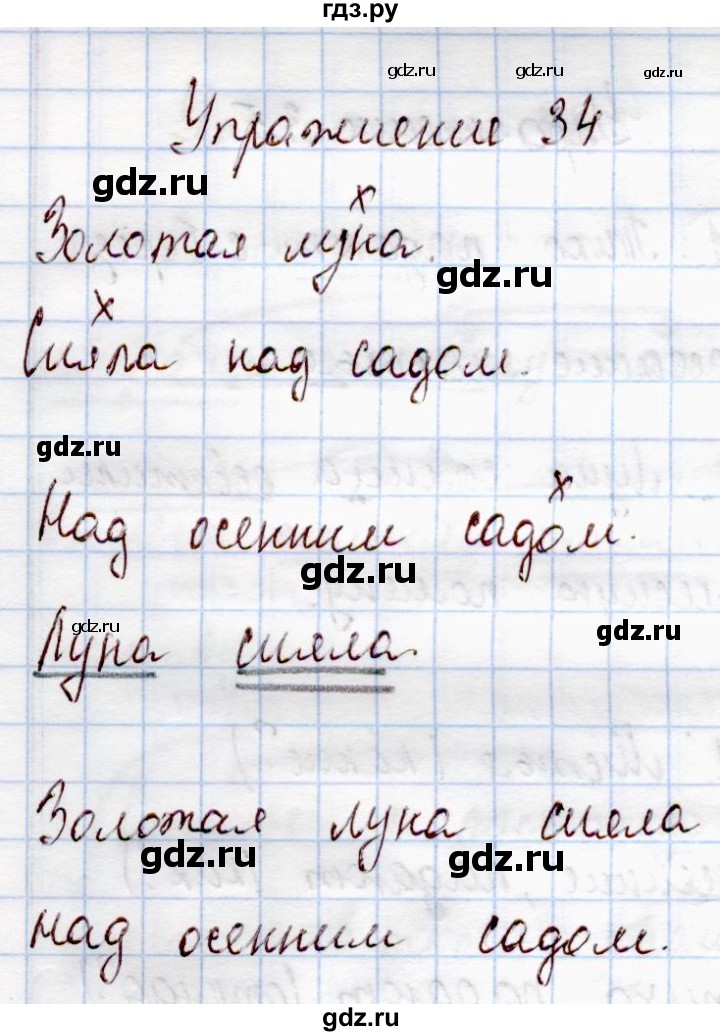 гдз.ру
gdz.ru gdz.ru gdz.ru
Упражнение 34
gdz.ru
х
Золотая луна.
gdz.ru
х
Сияла над садом.
gdz.ru
х
Над осенним садом.
gdz.ru
gdz.ru
gdz.ru
Луна сияла.
Золотая луна сияла
gdz.ru gdz.ru
над осенним садом.
gdz.ru gdz.ru